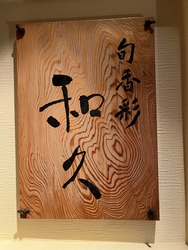 旬香彩
和久